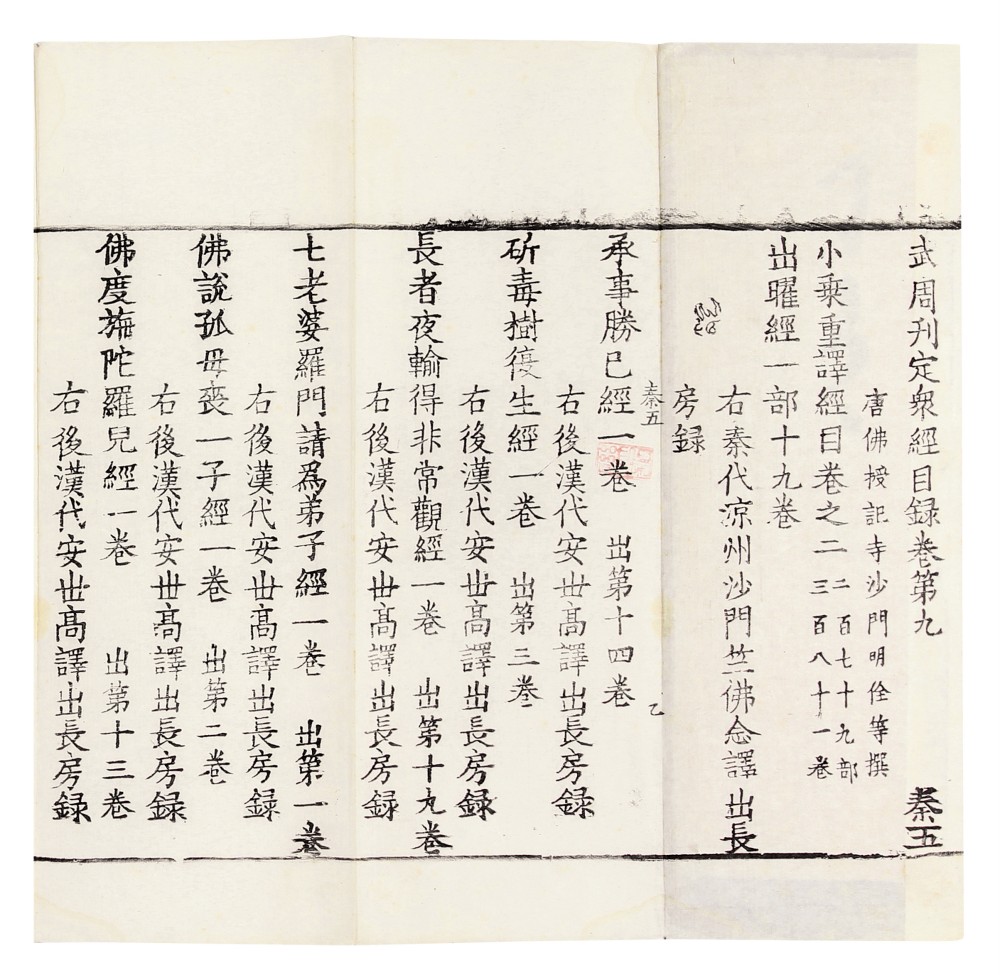 武周刊定衆經目録卷第九　秦五
唐佛授記寺沙門明佺等撰
小乗重譯經目卷之二　二百七十九部
三百八十一卷
出曜經一部十九卷
右秦代涼州沙門竺佛念譯出長
房録
秦五　乙
承事勝已經一卷　出第十四卷
右後漢代安世高譯出長房録
斫毒樹復生經一卷　出第三卷
右後漢代安世高譯出長房録
長者夜輸得非常觀經一卷　出第十九卷
右後漢代安世高譯出長房録
七老婆羅門請爲弟子經一卷　出第一卷
右後漢代安世高譯出長房録
佛說孤母喪一子經一卷　出第二卷
右後漢代安世高譯出長房録
佛度旃陀羅兒經一卷　出第十三卷
右後漢代安世高譯出長房録